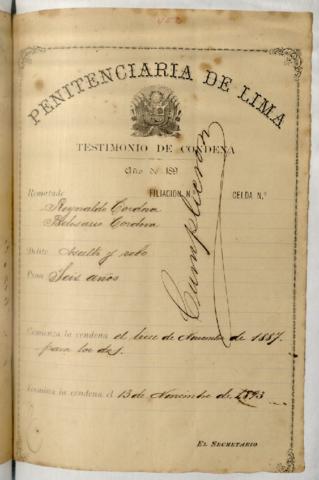 452
PENITENCIARIA DE LIMA
TESTIMONIO DE CONDENA
Año de 189
Rematado FILIACION N.º CELDA N.º
Reynaldo Cordova
Belisario Cordova
Delito Asalto y robo
Pena Seis años
Cumplieron
Comienza la condena el trece de Noviembre de 1887.
para los dos.
Termina la condena el 13 de Noviembre de 1893
EL SECRETARIO